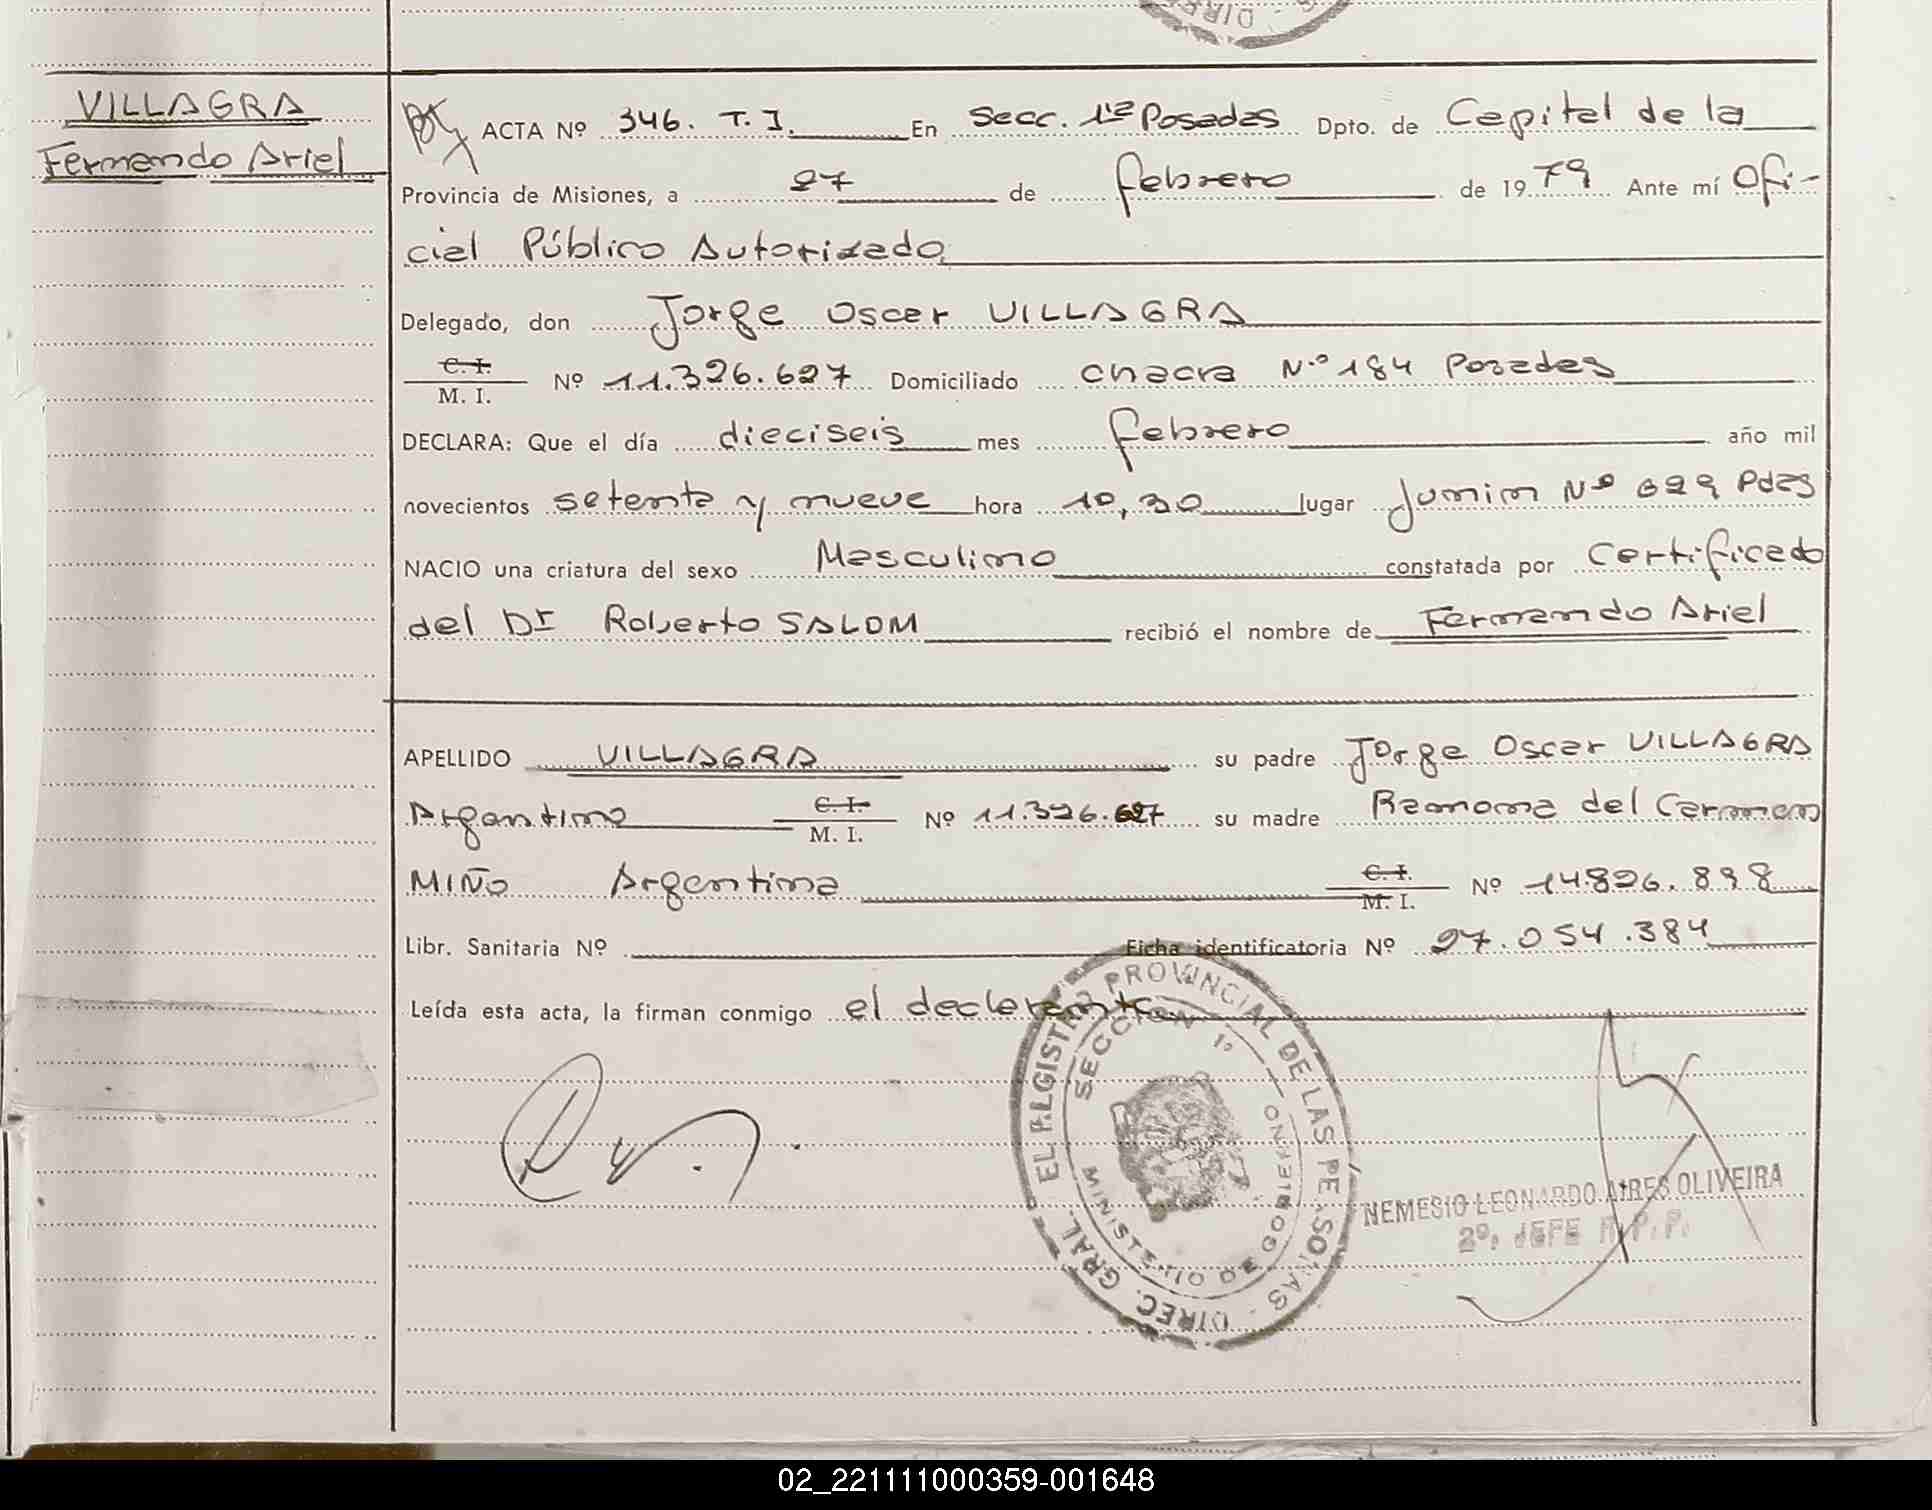 VILLAGRA
Fernando Ariel
ACTA Nº 346. T. I. En Secc. 1ª Posadas Dpto. de Capital de la
Provincia de Misiones, a 27 de febrero de 1979 Ante mí Ofi-
cial Público Autorizado
Delegado, don Jorge Oscar VILLAGRA
C. I.
M. I. Nº 11.326.627 Domiciliado Chacra Nº 184 Posadas
DECLARA: Que el día dieciseis mes febrero año mil
novecientos setenta y nueve hora 10,30 lugar Junin Nº Pdas
NACIO una criatura del sexo Masculino constatada por Certificado
del Dr Roberto SALOM recibió el nombre de Fernando Ariel
APELLIDO VILLAGRA su padre Jorge Oscar VILLAGRA
Argentino C. I. M. I. Nº 11.326.627 su madre Ramona del Carmen
MIÑO Argentina C. I. M. I. Nº 14.826.898
Libr. Sanitaria Nº Ficha identificatoria Nº 27.054.384
Leída esta acta, la firman conmigo el declarante
DIREC. GRAL. DEL REGISTRO PROVINCIAL DE LAS PERSONAS
SECCION 1º
MINISTERIO DE GOBIERNO
NEMESIO LEONARDO AIRES OLIVEIRA
2º. JEFE R.P.P.
02_221111000359-001648